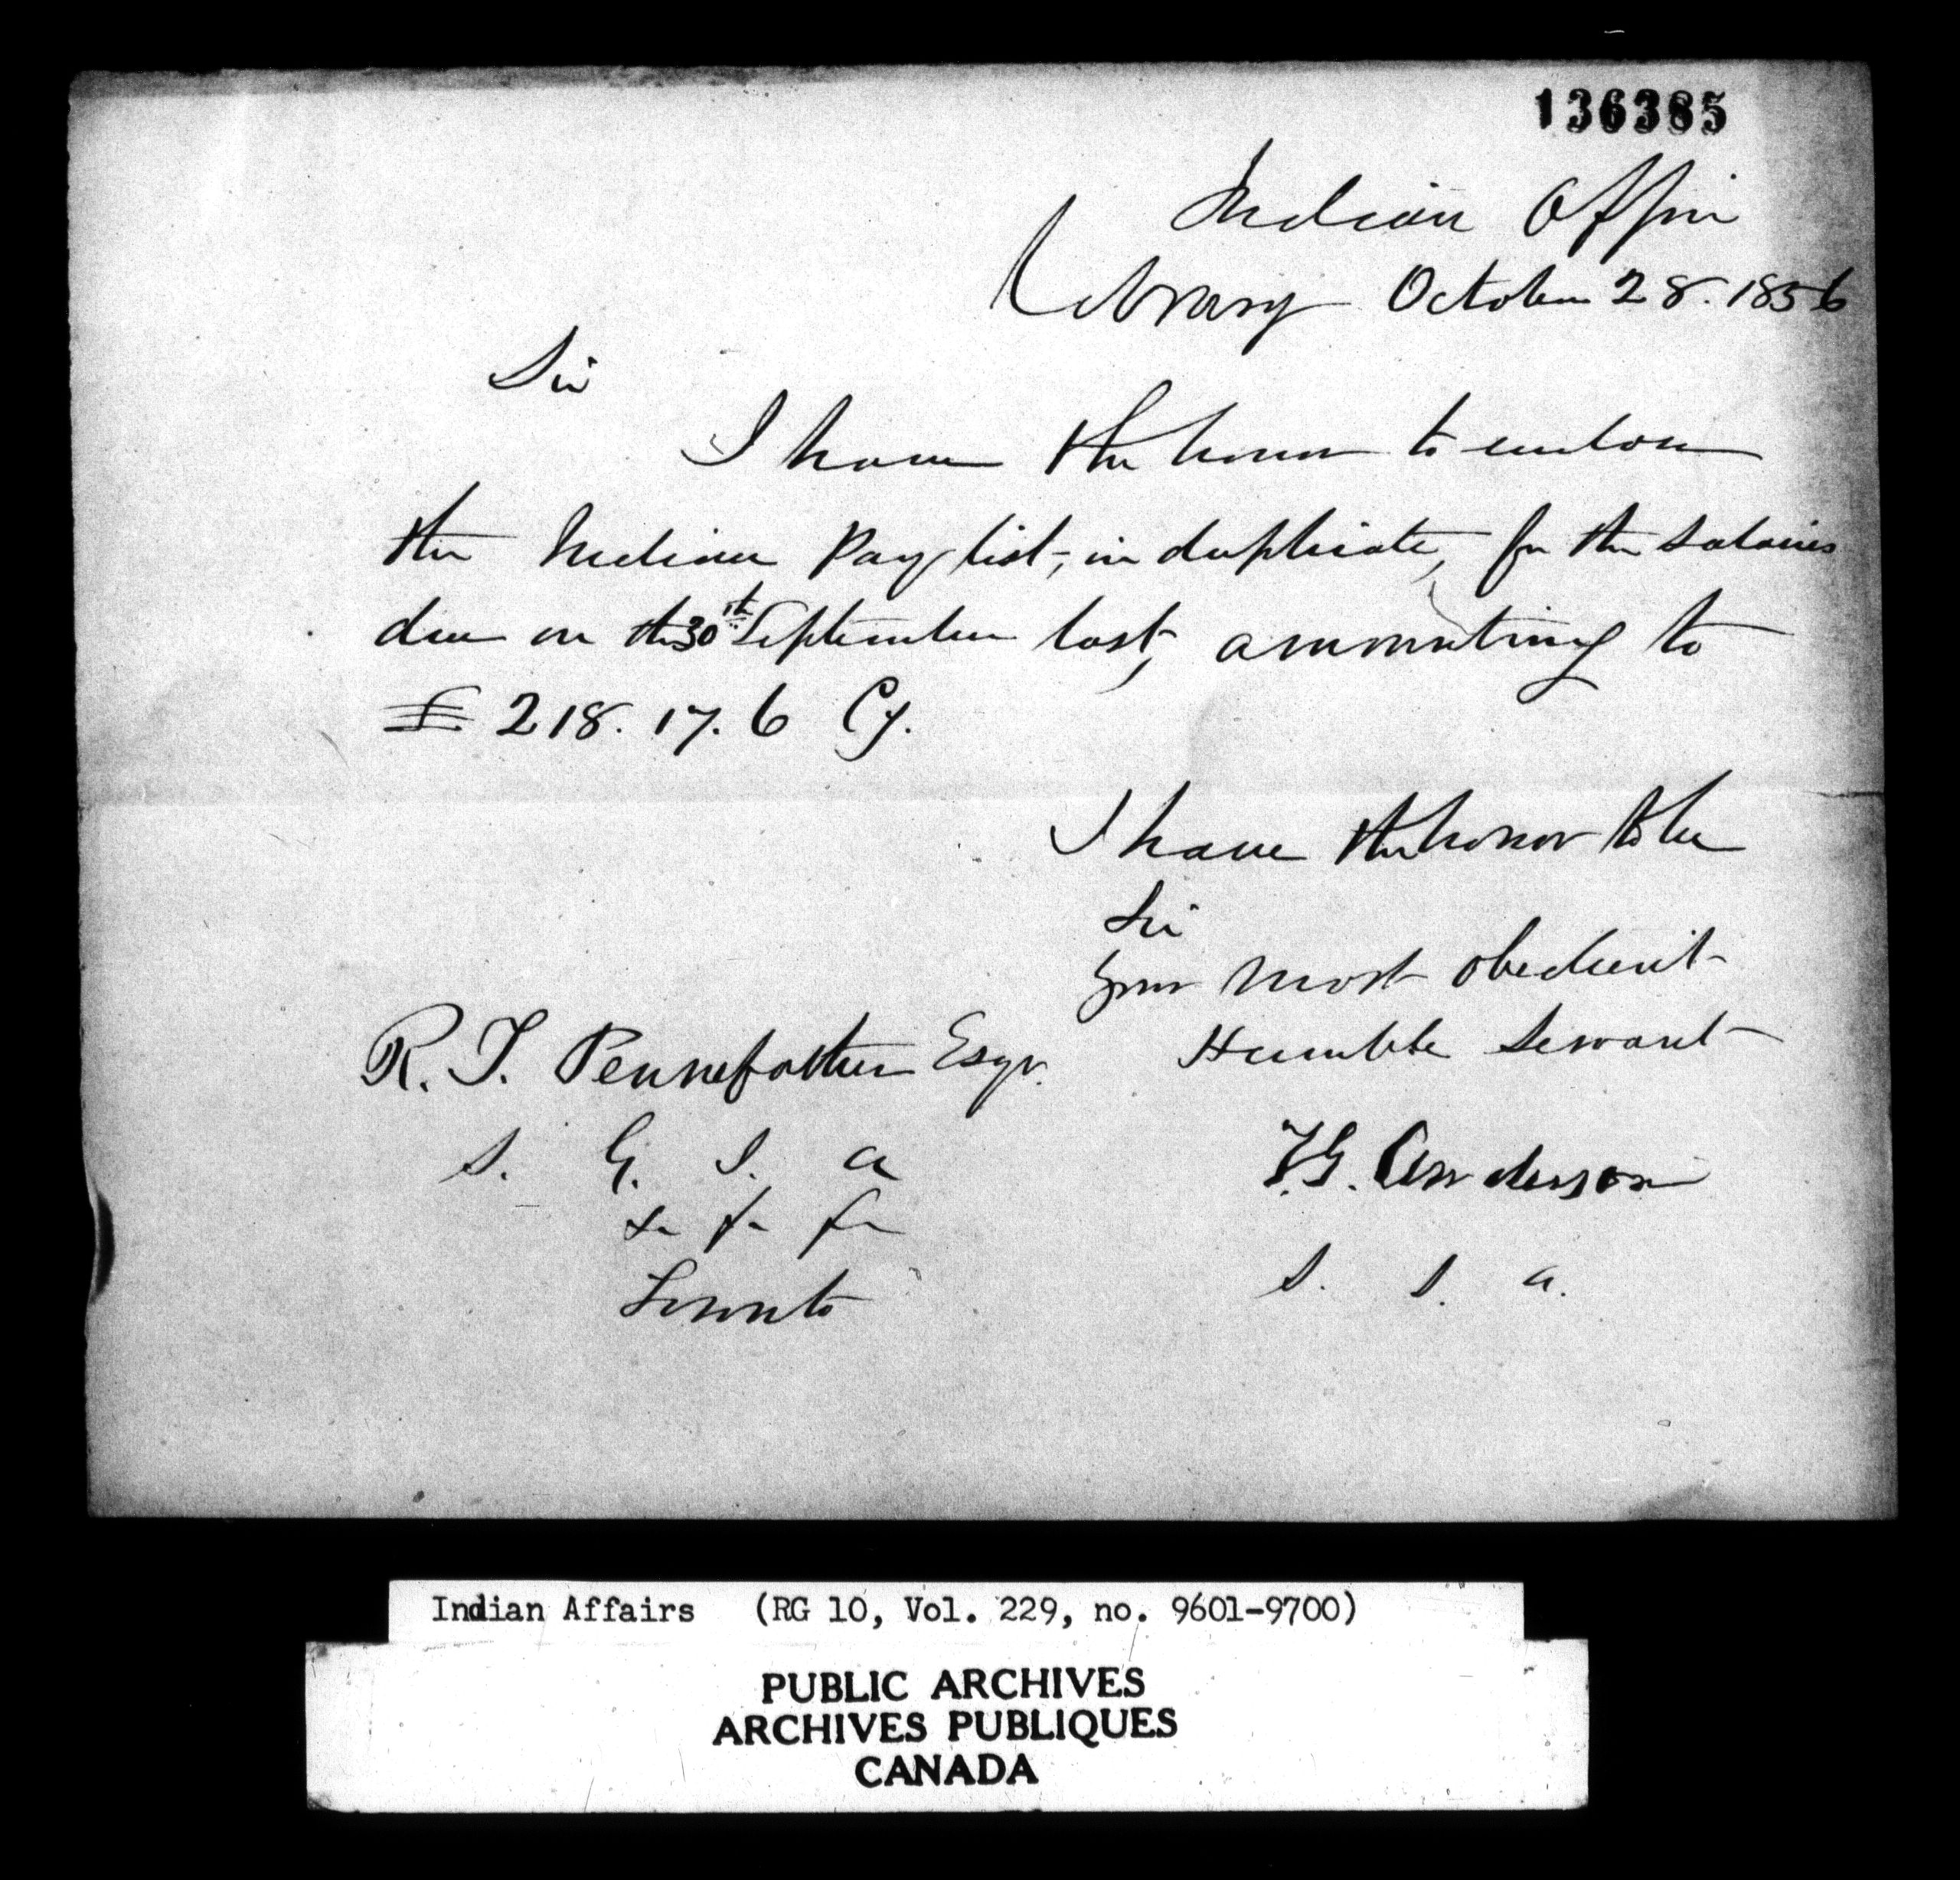 136385
Indian Office
Cobourg October 28. 1856
Sir
I have the honor to enclose
the Indian Pay list, in duplicate, for the Salaries
due on the 30th September last, amounting to
£ 218. 17. 6 Cy.
I have the honor to be
Sir
Your most obedient
Humble Servant
R. T. Pennefather Esqr.
S. G. I. A
&c &c &c
Toronto
T.G. Anderson
S. I. A.
Indian Affairs (RG 10, Vol. 229, no. 9601-9700)
PUBLIC ARCHIVES
ARCHIVES PUBLIQUES
CANADA